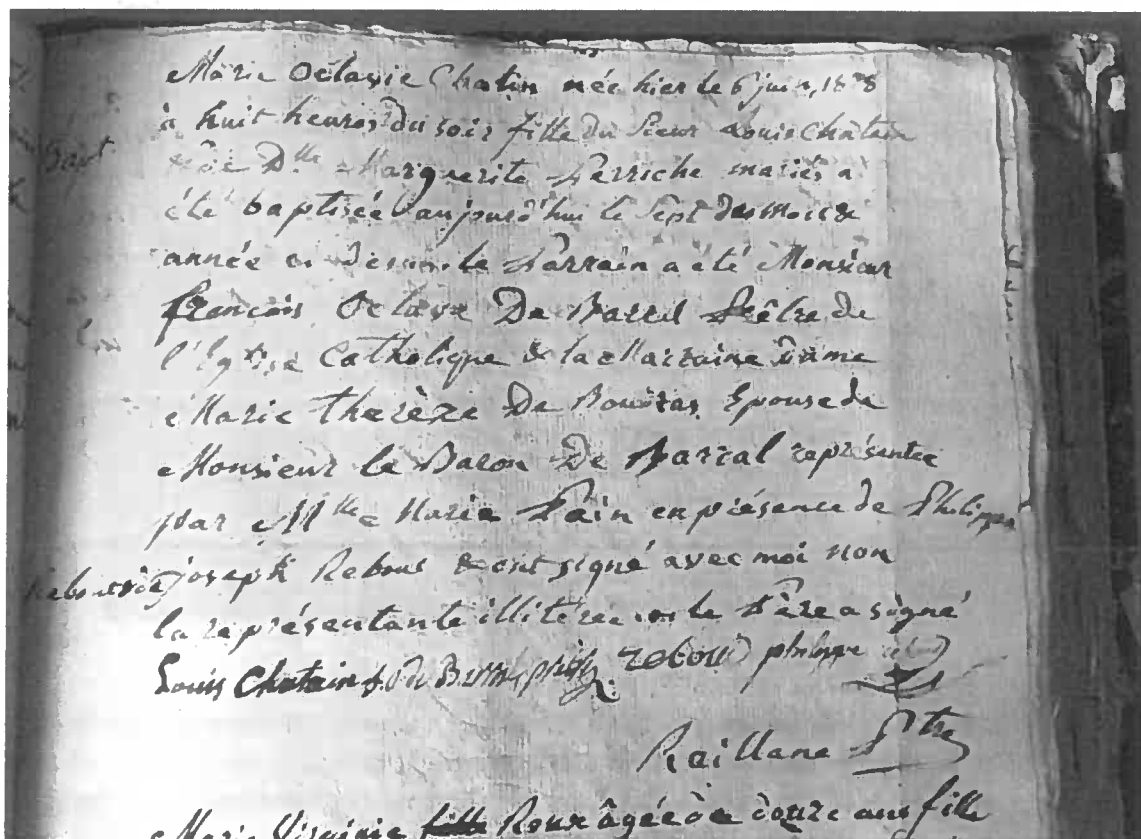 Marie Octavie Chatin née hier le 6 juin, 18
à huit heures du soir fille du Sieur Louis Chatain
D.lle Marguerite Perriche mariés a
été baptisée aujourd'hui le Sept des mois &
année ci dessus le Parrain a été Monsieur
françois Octave De Barral Prêtre de
l'Eglise Catholique & la Marraine Dame
Marie Therèze De Bouvras Epouse de
Monsieur le Baron De Barral représentée
par M.lle Marie Pain en présence de Philippe
joseph Rebous & ont signé avec moi non
la représentante illitérée le Père a signé
Louis Chatain f. O. de rebous philippe
Raillane P.tre
Marie Virginie fille Roux âgée de douze ans fille